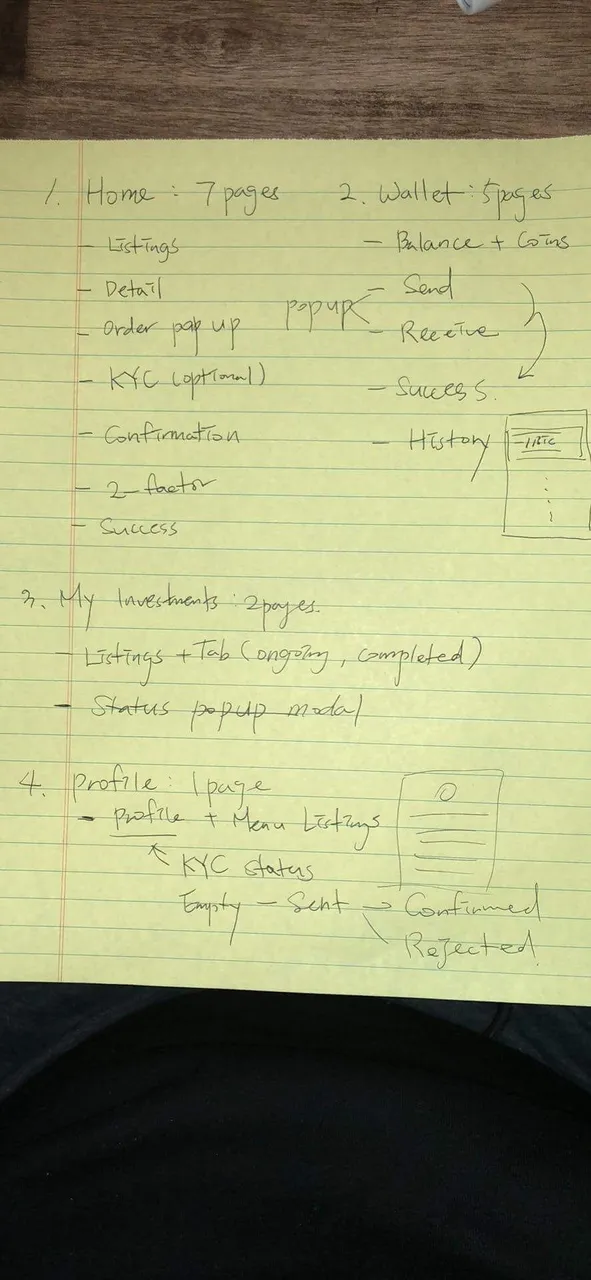 1. Home : 7 pages
- Listings
- Detail
- Order pop up
- KYC (optional)
- Confirmation
- 2-factor
- Success
2. Wallet : 5 pages
- Balance + Coins
popup
- Send
- Receive
- Success.
- History
3. My Investments : 2 pages.
- Listings + Tab (ongoing, completed)
- Status popup modal
4. Profile : 1 page
- Profile + Menu Listings
KYC status
Empty - Sent → Confirmed
Rejected.